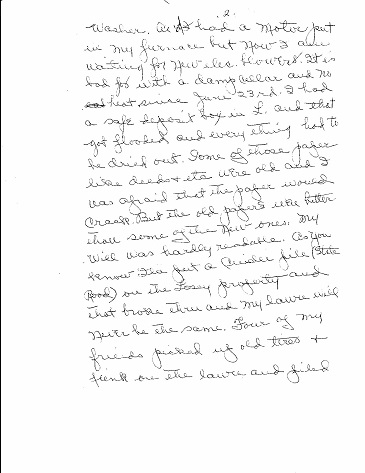 2.
Washer. As I had a Motor put
in my furnace but Now I am
waiting for New elec. blowers. It is
bad for with a damp cellar and no
heat since June 23rd. I had
a safe deposit box in L. and that
got flooded and every thing had to
be dried out. Some of those paper
like deeds & etc were old and I
was afraid that the paper would
Crack. But the old papers were better
than some of the New ones. My
Will was hardly readable. As you
know I put a Cinder file (State
Road) on the Losey property and
that broke thru and my lawn will
never be the same. Four of my
friends picked up old tires +
junk on the lawn and filed